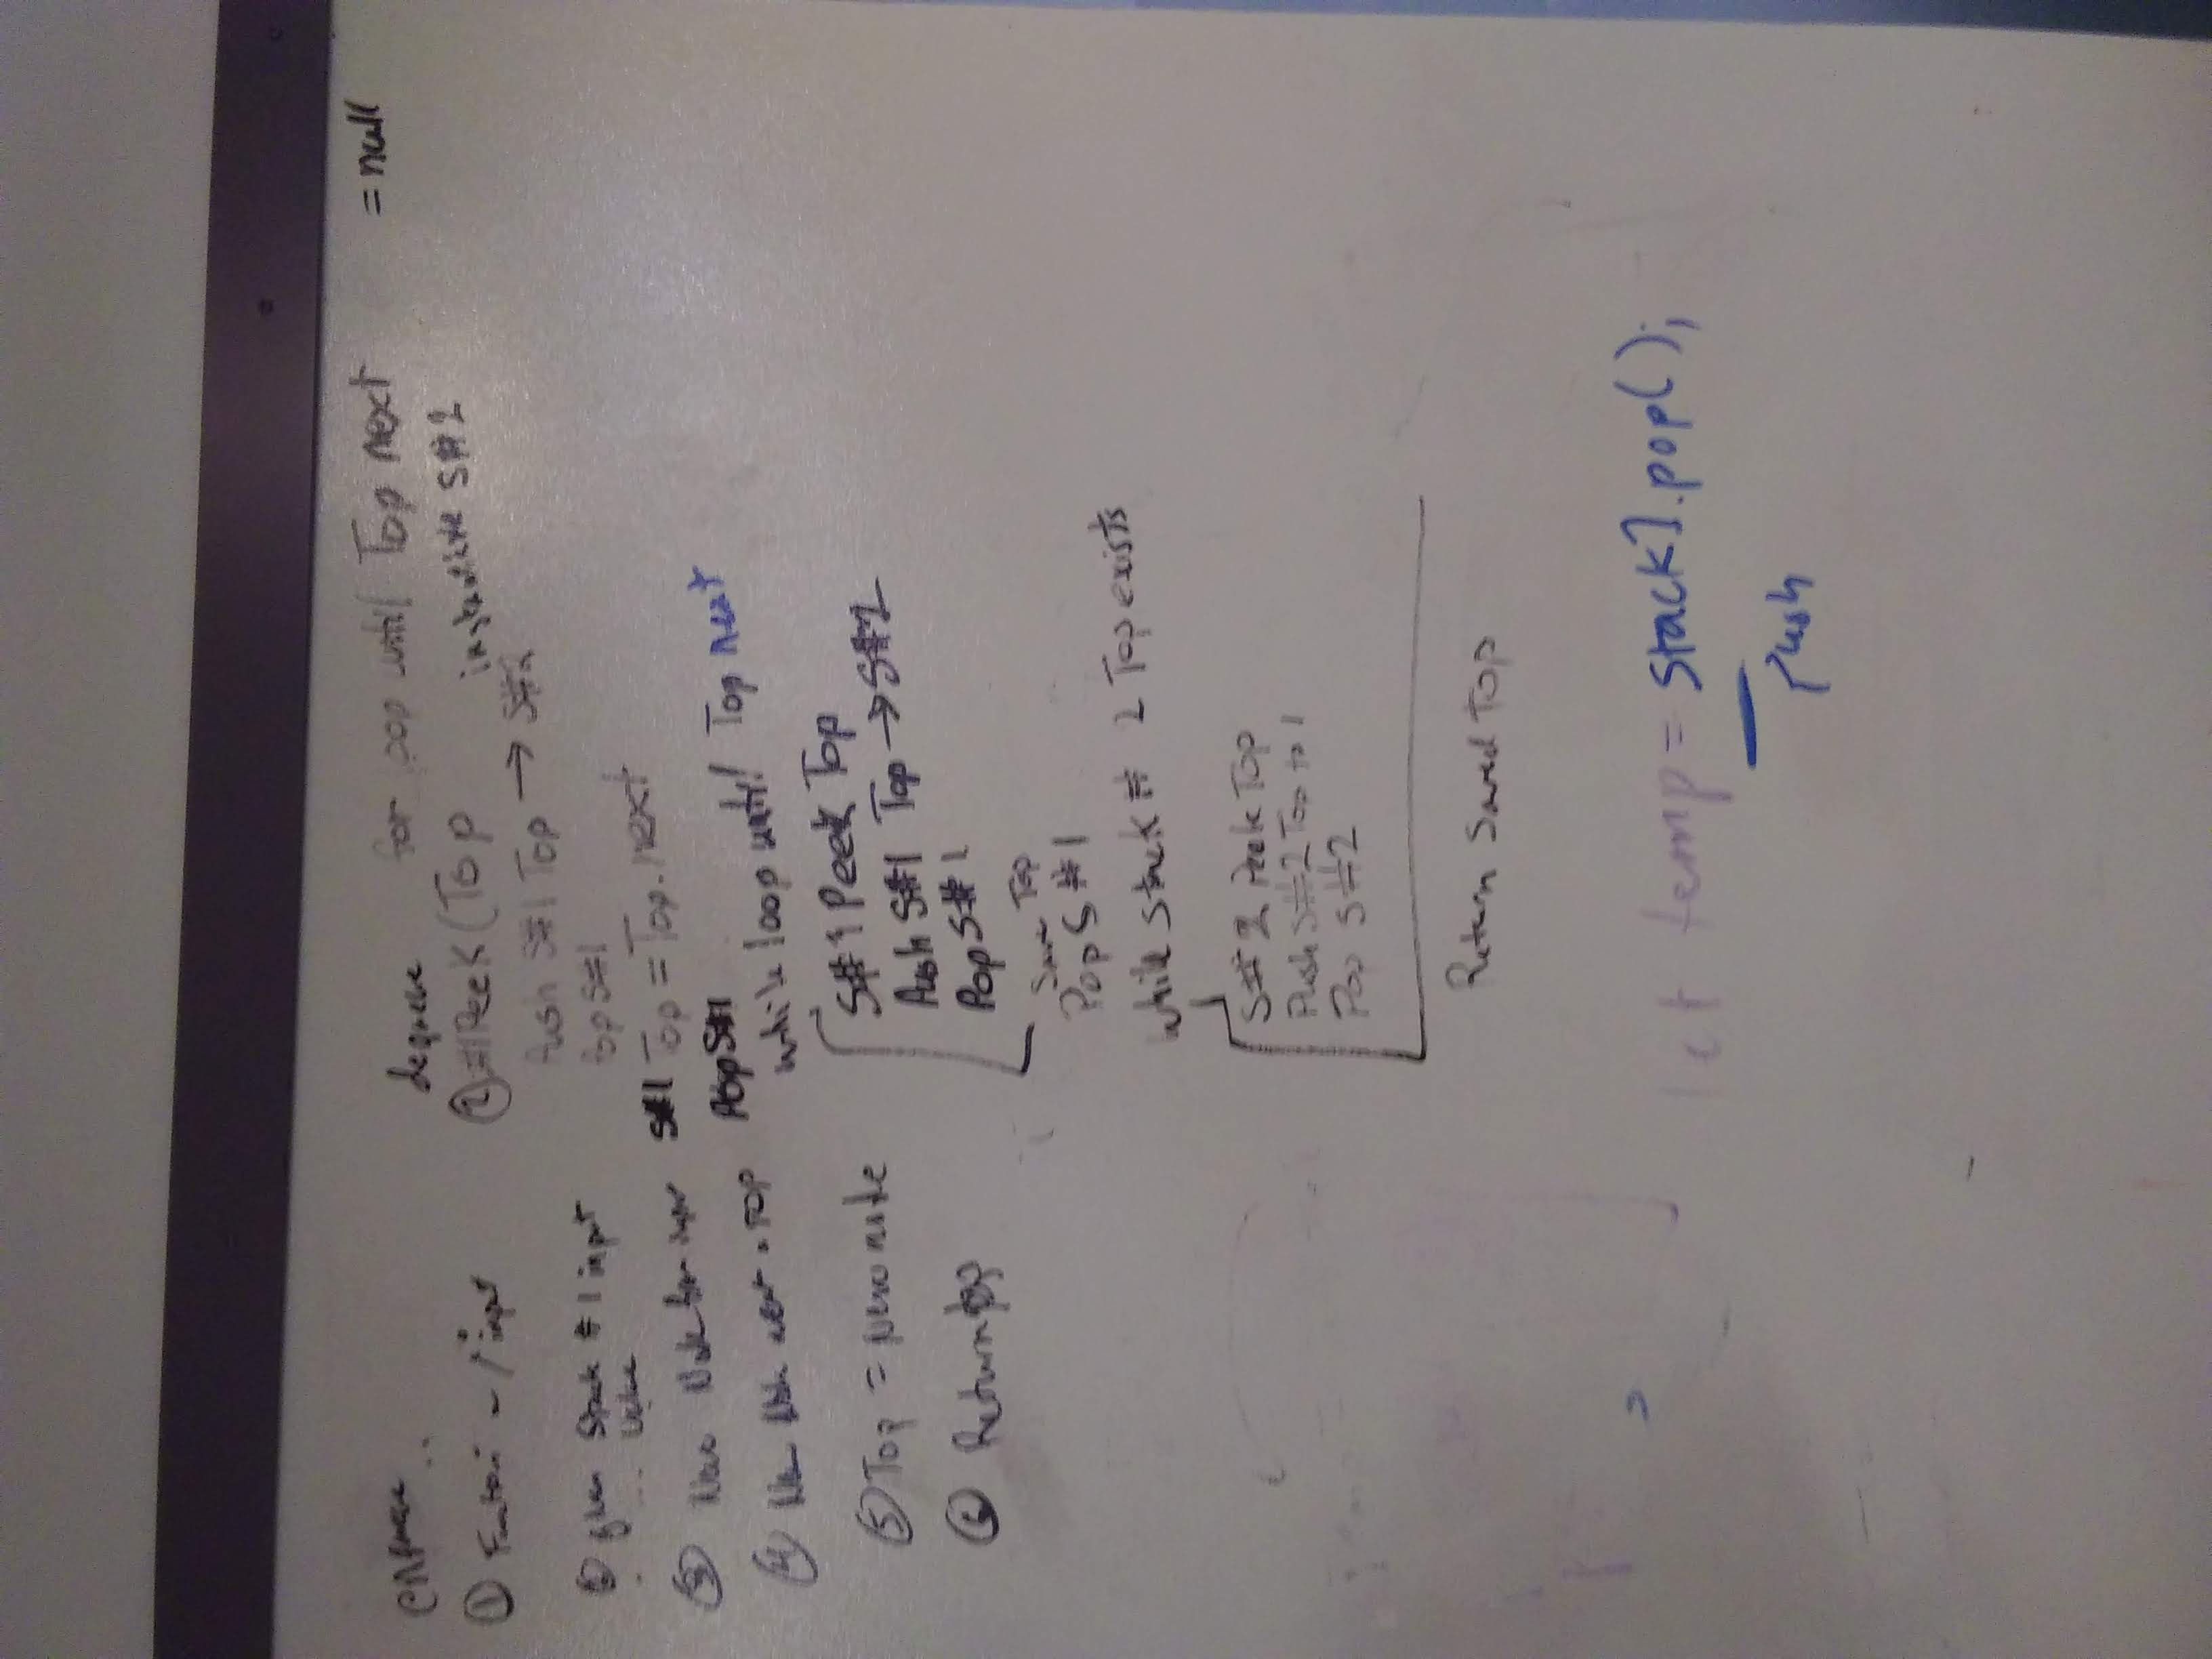 enqueue
① Function - 1 input
② given Stack # 1 input
value
③ New Node from input
④ New Node next = TOP
⑤ Top = New node
⑥ Return top
dequeue for pop until Top next = null
#1 Peek (Top instantiate S#2
Push S#1 Top → S#2
Pop S#1
S#1 Top = Top.next
Pop S#1
while loop until Top next
S#1 Peek Top
Push S#1 Top → S#2
Pop S#1
Save Top
Pop S#1
while stack # 2 Top exists
S#2 Peek Top
Push S#2 Top to 1
Pop S#2
Return Saved Top
let temp = stack1.pop();
push